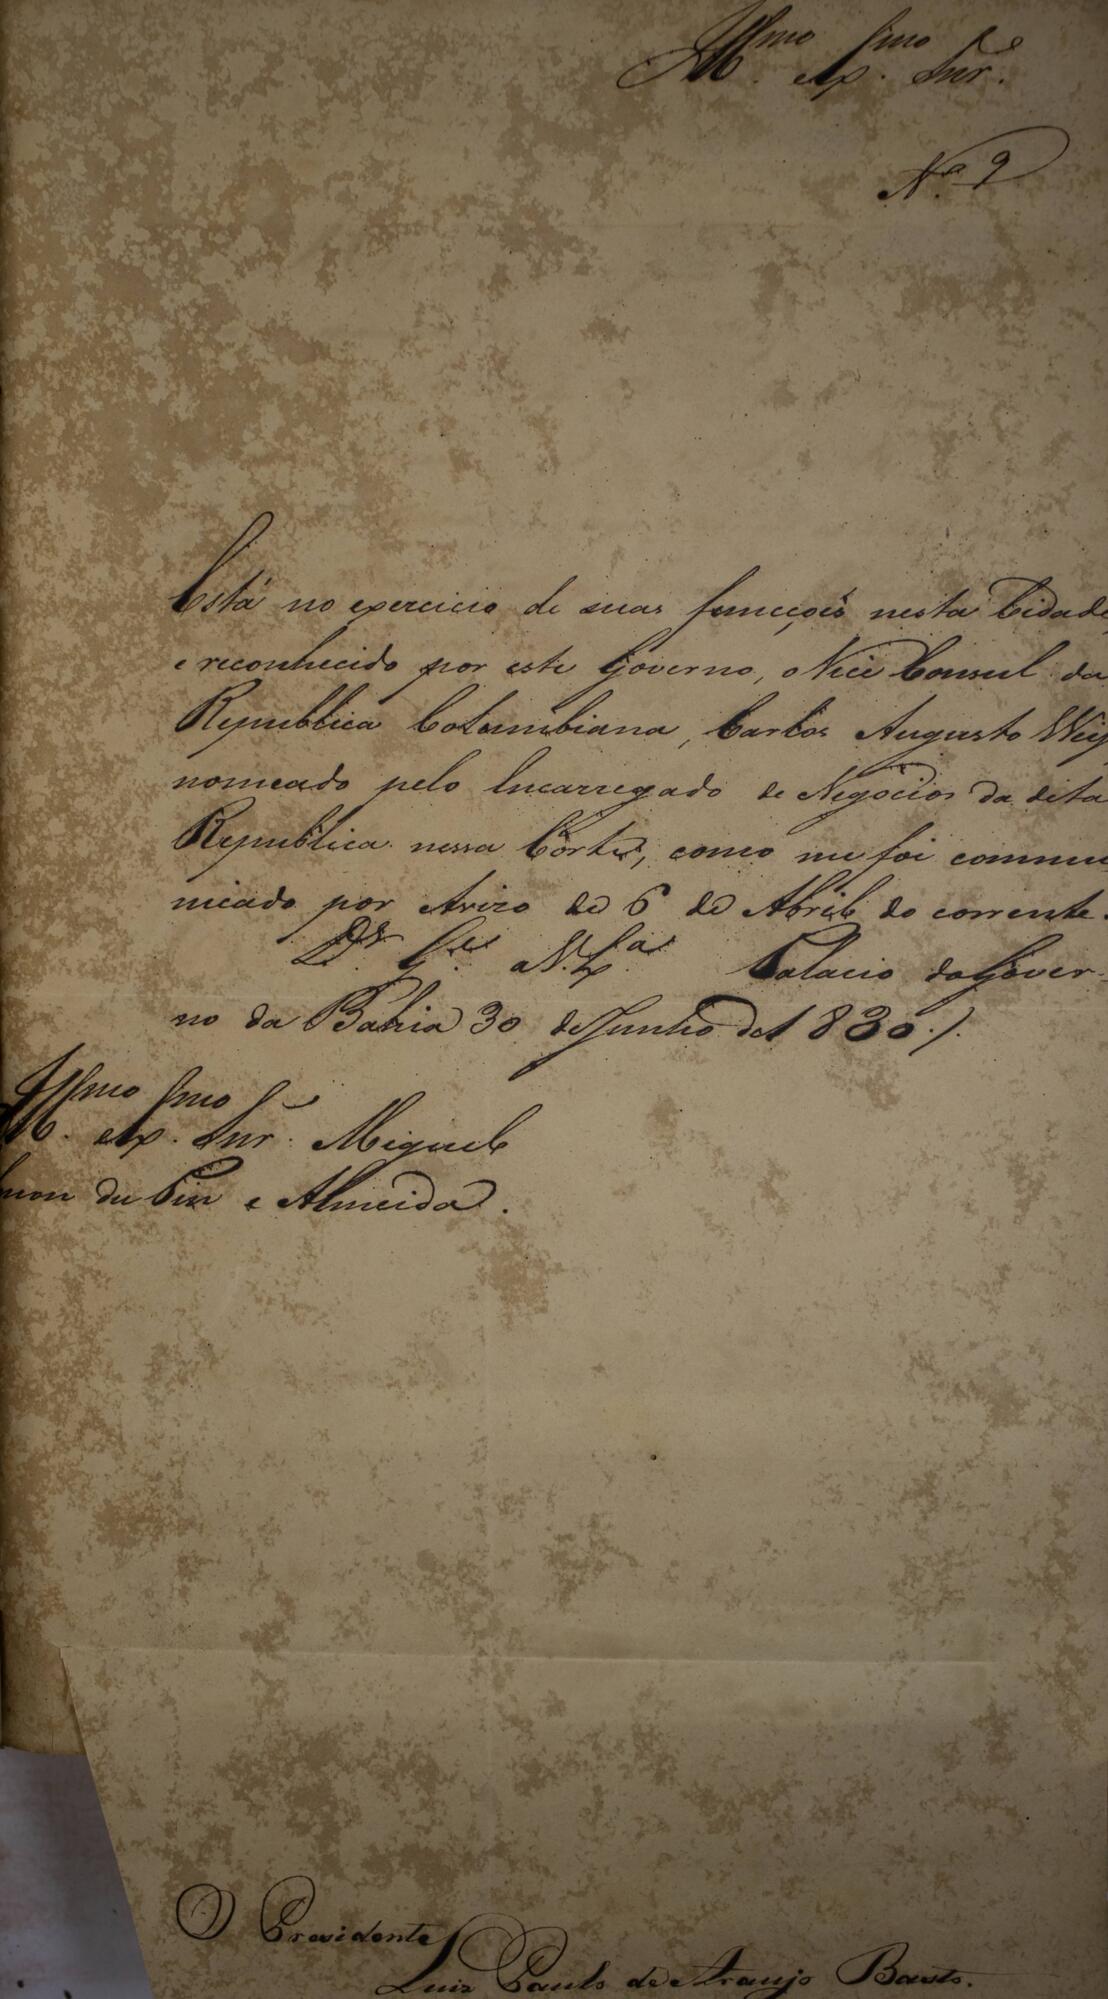 Illmo Exmo Snr.
N.º 9
Está no exercicio de suas funcções nesta Cidade
e reconhecido por este Governo, o Vice Consul da
Republica Columbiana, Carlos Augusto Wey
nomeado pelo Encarregado de Negocios da dita
Republica nessa Côrte, como me foi commu
nicado por Avizo de 6 de Abril do corrente.
Ds. Ge. a V. Exa. Palacio do Gover-
no da Bahia 30 de Junho de 1830./.
Illmo Exmo Snr. Miguel
mon du Pin e Almeida.
O Presidente
Luiz Paulo de Araujo Basto.